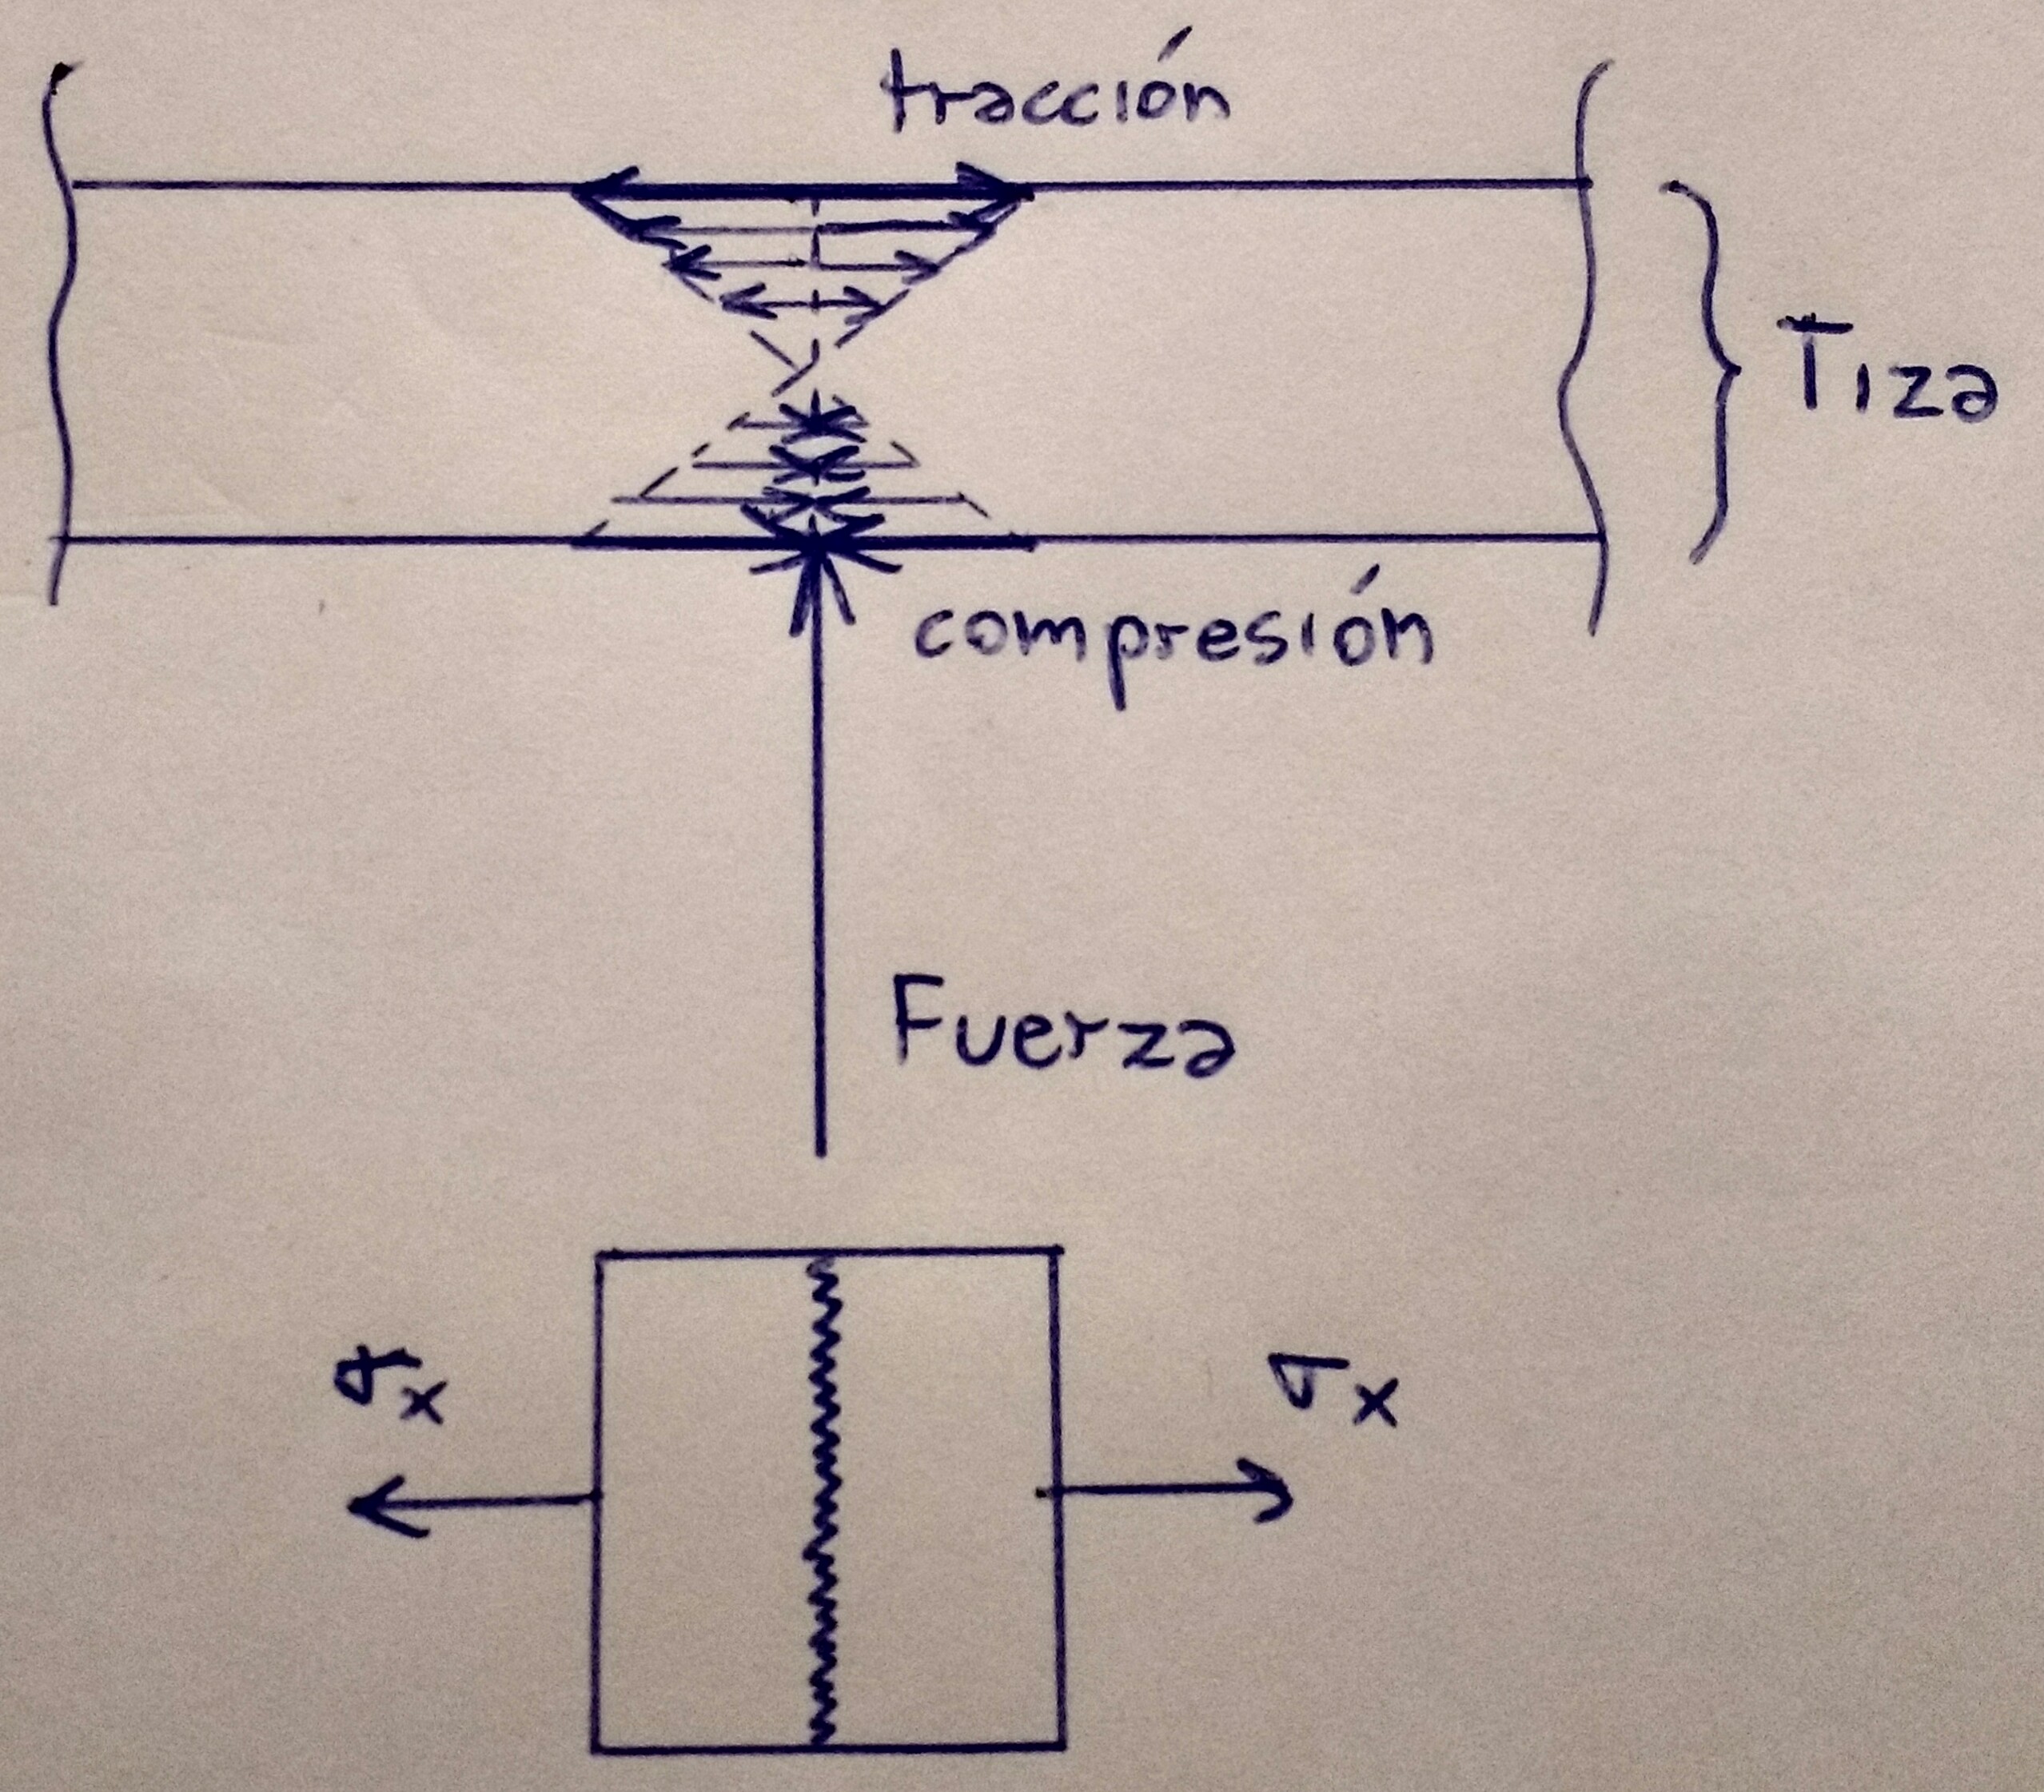 tracción
Tiza
compresión
Fuerza
σx σx